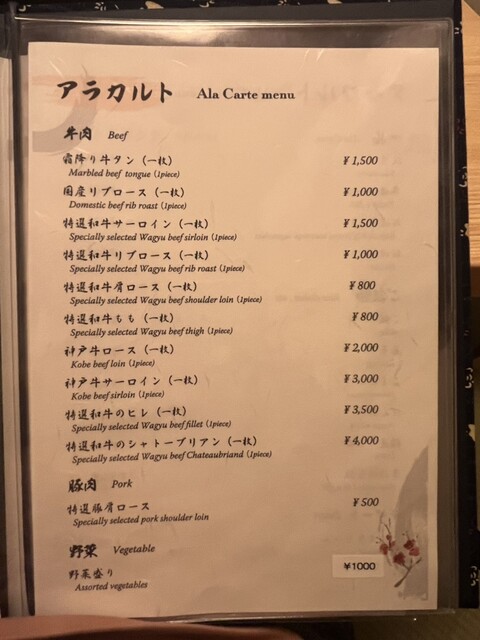 アラカルト Ala Carte menu
牛肉 Beef
霜降り牛タン（一枚） ¥1,500
Marbled beef tongue (1piece)
国産リブロース（一枚） ¥1,000
Domestic beef rib roast (1piece)
特選和牛サーロイン（一枚） ¥1,500
Specially selected Wagyu beef sirloin (1piece)
特選和牛リブロース（一枚） ¥1,000
Specially selected Wagyu beef rib roast (1piece)
特選和牛肩ロース（一枚） ¥800
Specially selected Wagyu beef shoulder loin (1piece)
特選和牛もも（一枚） ¥800
Specially selected Wagyu beef thigh (1piece)
神戸牛ロース（一枚） ¥2,000
Kobe beef loin (1piece)
神戸牛サーロイン（一枚） ¥3,000
Kobe beef sirloin (1piece)
特選和牛のヒレ（一枚） ¥3,500
Specially selected Wagyu beef fillet (1piece)
特選和牛のシャトーブリアン（一枚） ¥4,000
Specially selected Wagyu beef Chateaubriand (1piece)
豚肉 Pork
特選豚肩ロース ¥500
Specially selected pork shoulder loin
野菜 Vegetable
野菜盛り ¥1000
Assorted vegetables